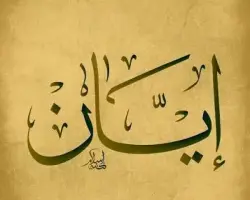 إيّان